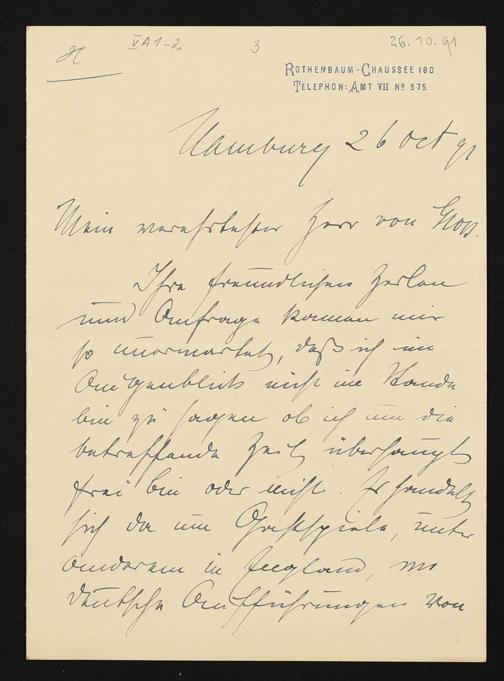 VA1-2 3 26.10.91
ROTHENBAUM-CHAUSSEE 180
TELEPHON: AMT VII No 575.
Hamburg 26 Oct 91
Mein verehrtester Herr von Gross.
Ihre freundlichen Zeilen
und Anfrage kamen mir
so unerwartet, daß ich im
Augenblick nicht im Stande
bin zu sagen ob ich um die
betreffende Zeit überhaupt
frei bin oder nicht. Es handelt
sich da um Gastspiele, unter
anderem in England, wo
deutsche Aufführungen von